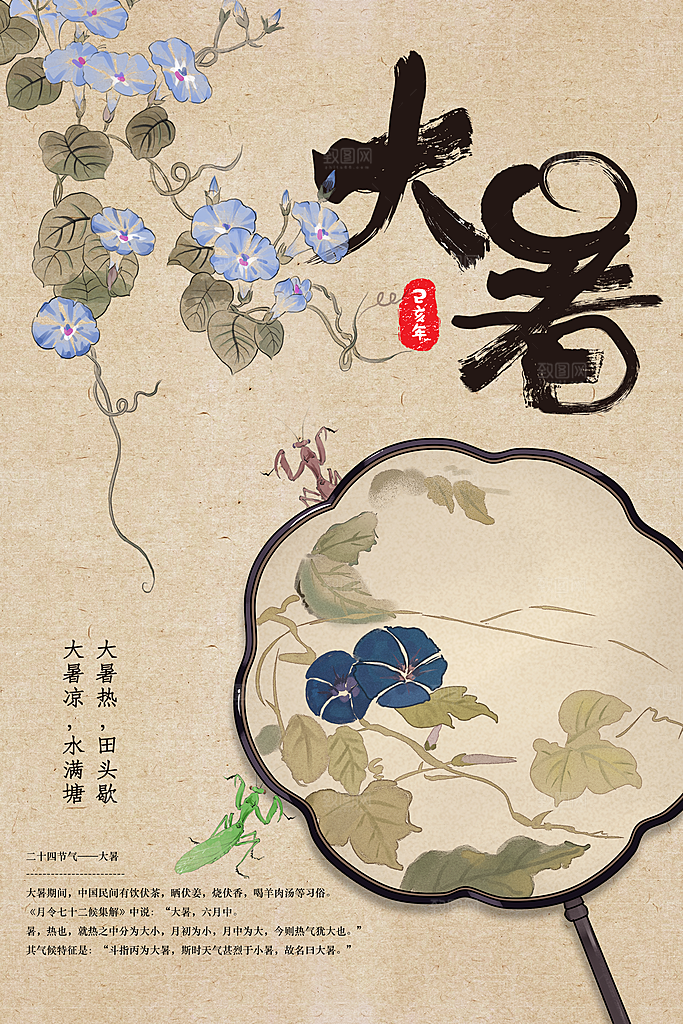 大暑
己亥年
大暑热，田头歇
大暑凉，水满塘
二十四节气——大暑
大暑期间，中国民间有饮伏茶，晒伏姜，烧伏香，喝羊肉汤等习俗。
《月令七十二候集解》中说：“大暑，六月中。
暑，热也，就热之中分为大小，月初为小，月中为大，今则热气犹大也。”
其气候特征是：“斗指丙为大暑，斯时天气甚烈于小暑，故名曰大暑。”
致图网
致图网